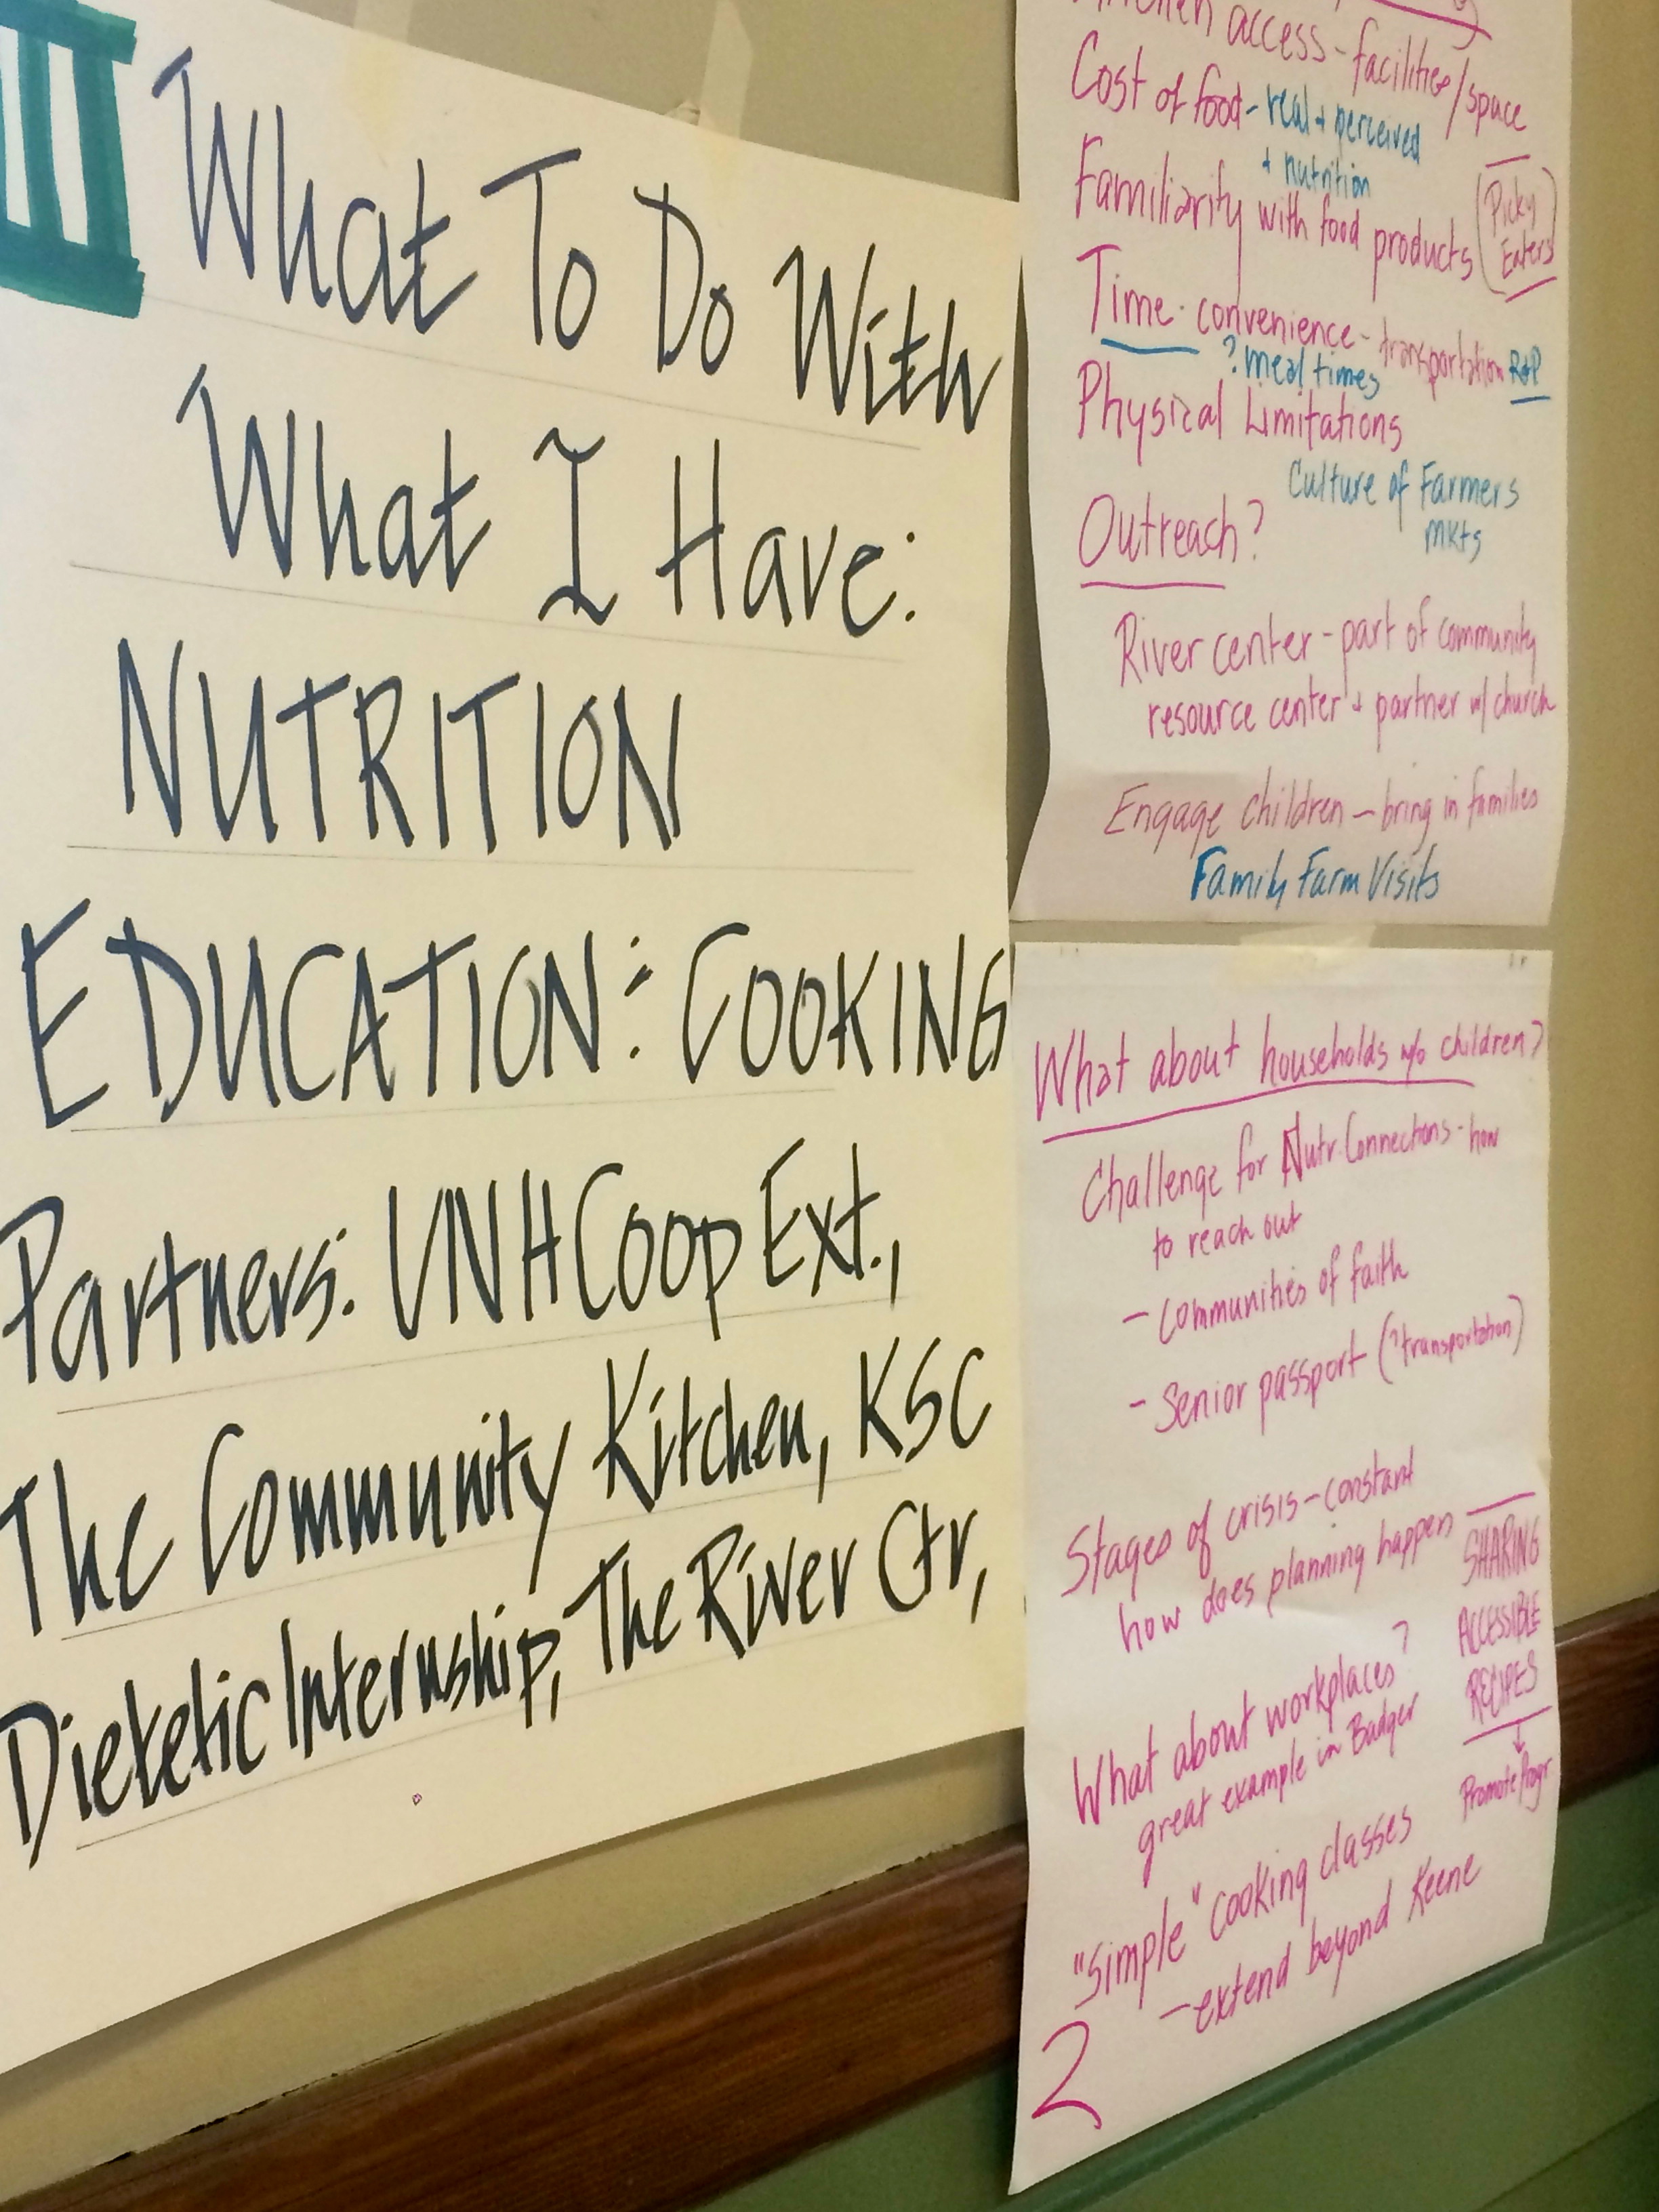 III
What To Do With
What I Have:
NUTRITION
EDUCATION: COOKING
Partners: UNH Coop Ext.,
The Community Kitchen, KSC
Dietetic Internship, The River Ctr,
access - facilities/space
Cost of food - real + perceived
+ nutrition
Familiarity with food products (Picky
Eaters)
Time - convenience - transportation
? meal times
Physical Limitations
Culture of Farmers
mkts
Outreach?
River center - part of community
resource center + partner w/ church
Engage children - bring in families
Family Farm Visits
What about households w/o children?
Challenge for Nutr. Connections - how
to reach out
- communities of faith
- Senior passport (?transportation)
Stages of crisis - constant
how does planning happen
SHARING
ACCESSIBLE
RECIPES
Promote Progr
What about workplaces?
great example in Badger
"Simple" cooking classes
- extend beyond Keene
2